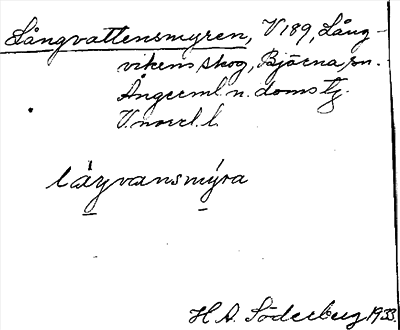 Långvattensmyren, V 189, Lång-
vikens skog, Bjärna sn.
Ångerml. n. doms tg.
V.norrl. l.
lågvansmýra
H. A. Söderberg 1933.